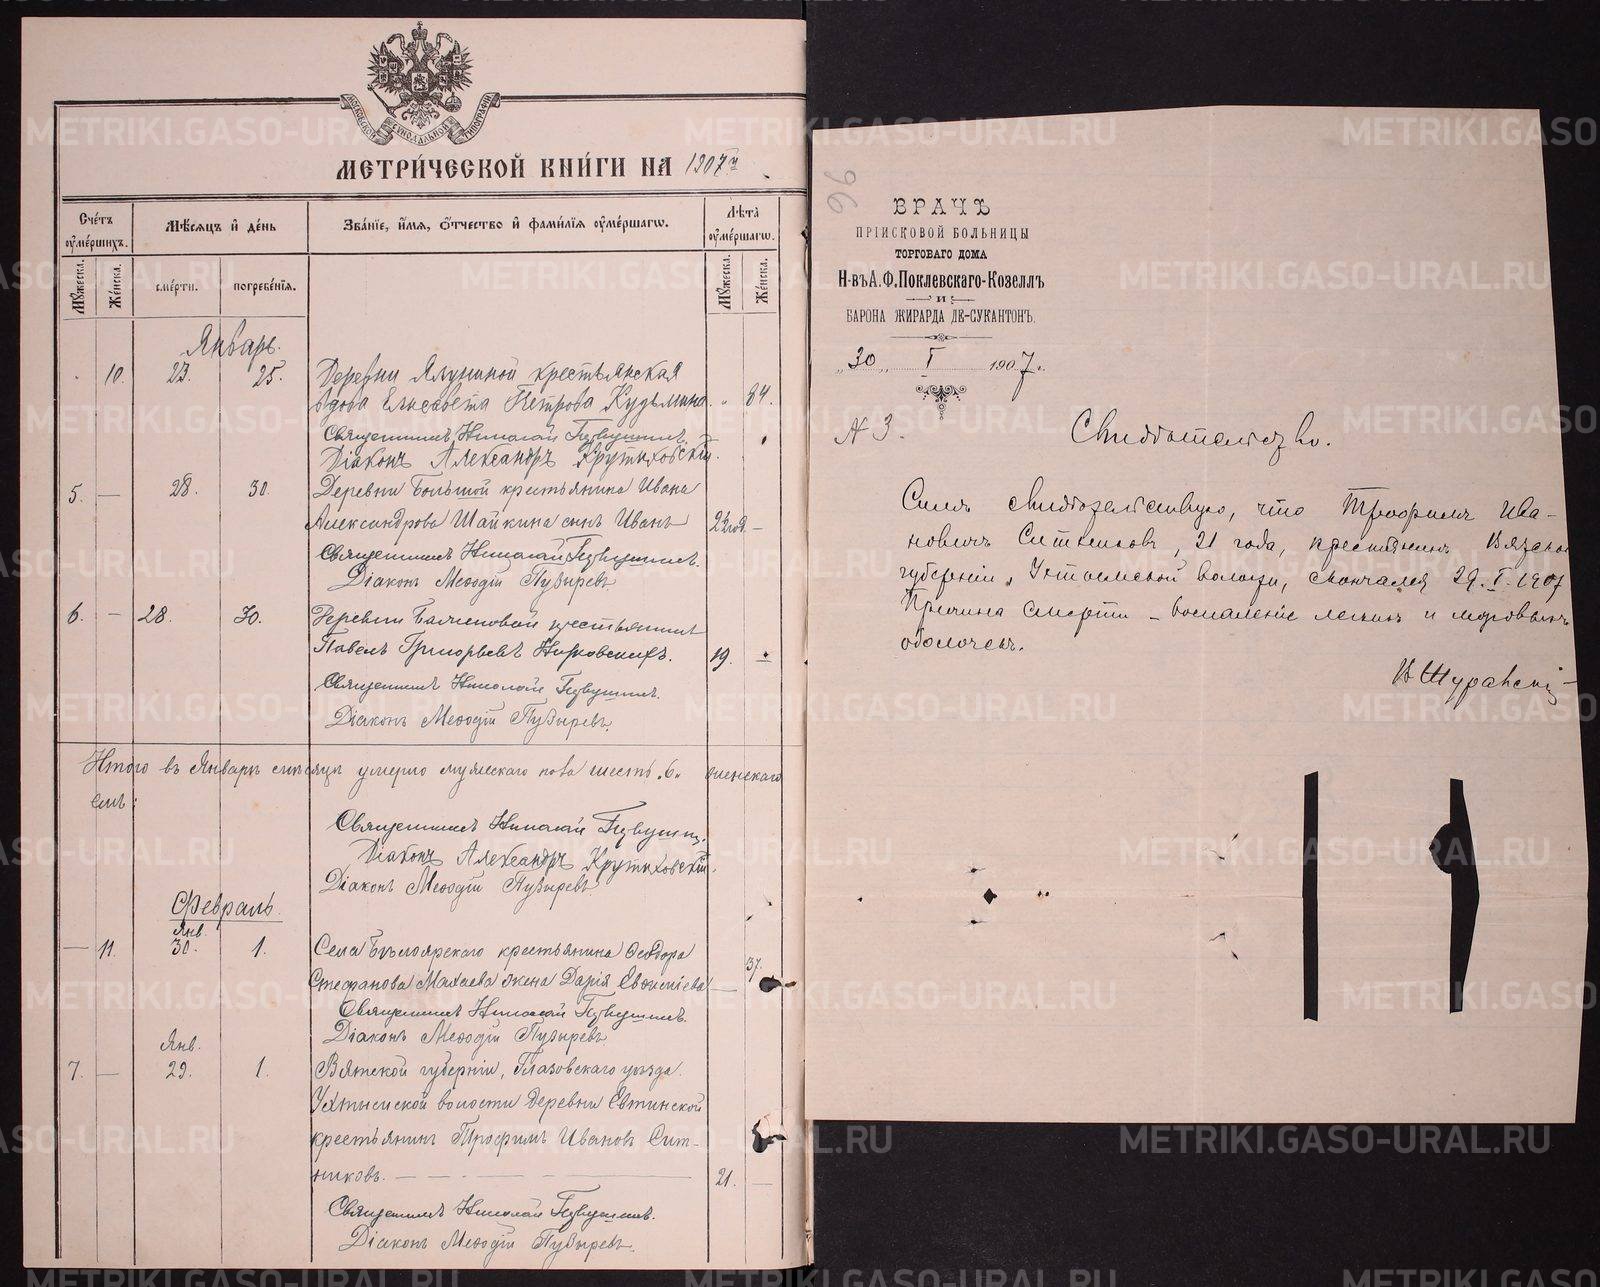 МОСКОВСКОЙ СѴНОДАЛЬНОЙ ТИПОГРАФІИ
МЕТРИ́ЧЕСКОЙ КНИ́ГИ НА 1907 г.
Сче́тъ ᲂу҆ме́ршихъ.
Мѣ́сяцъ и҆ де́нь
Зва́нїе, и҆́мѧ, ѻ҆́тчество и҆ фами́лїѧ ᲂу҆ме́ршагѡ.
Лѣ́та ᲂу҆ме́ршагѡ.
Мꙋ́жеска.
Же́нска.
сме́рти.
погребе́нїѧ.
Мꙋ́жеска.
Же́нска.
Январь.
10. 23. 25. Деревни Ялуниной крестьянская
вдова Елисавета Петрова Кузьмина. „ 84.
Священникъ Николай
Діаконъ Александръ Крутиховскій.
5. — 28. 30. Деревни Большой крестьянина Ивана
Александрова Шайкина сынъ Иванъ —
Священникъ Николай
Діаконъ Меѳодій Пузыревъ.
6. — 28. 30. Деревни крестьянинъ
Павелъ Григорьевъ 19. —
Священникъ Николай
Діаконъ Меѳодій Пузыревъ.
Итого въ Январѣ мѣсяцѣ умерло мужескаго пола шесть „6„ женскаго
Священникъ Николай
Діаконъ Александръ Крутиховскій.
Діаконъ Меѳодій Пузыревъ
Февраль
Янв.
— 11. 30. 1. Села Бѣлоярскаго крестьянина Ѳеодора
Стефанова жена Дарія — 37.
Священникъ Николай
Діаконъ Меѳодій Пузыревъ.
Янв.
7. — 29. 1. Вятской губерніи, Глазовскаго уѣзда
Ухтымской волости деревни
крестьянинъ Трофимъ Ивановъ Сит-
никовъ. — 21. —
Священникъ Николай
Діаконъ Меѳодій Пузыревъ.
96
ВРАЧЪ
ПРІИСКОВОЙ БОЛЬНИЦЫ
ТОРГОВАГО ДОМА
Н-въ А. Ф. Поклевскаго-Козеллъ
И
БАРОНА ЖИРАРДА ДЕ-СУКАНТОНЪ.
„30„ I 1907 г.
№ 3.
Свидѣтельство.
Симъ свидѣтельствую, что Трофимъ Ива-
новичъ Ситниковъ, 21 года, крестьянинъ Вятской
губерніи, Ухтымской волости, скончался 29. I. 1907
Причина смерти – воспаленіе легкихъ и мозговыхъ
оболочекъ.
METRIKI.GASO-URAL.RU